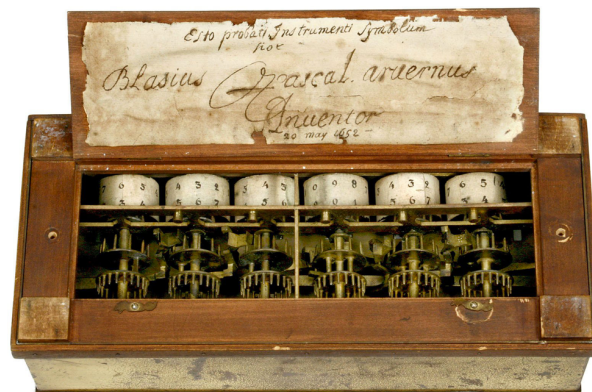 Esto probati Instrumenti Symbolum
hoc
Blasius Pascal. arvernus
Inventor
20 may 1652
7 6 3 4 3 2 5 4 3 0 9 8 4 3 2 7 6 5